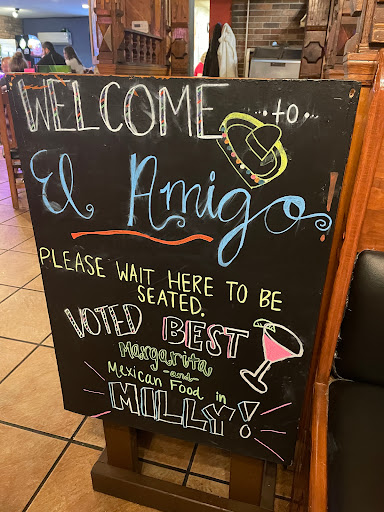 WELCOME ...to...
El Amigo
PLEASE WAIT HERE TO BE
SEATED.
VOTED BEST
Margarita
-and-
Mexican Food in
MILLY!